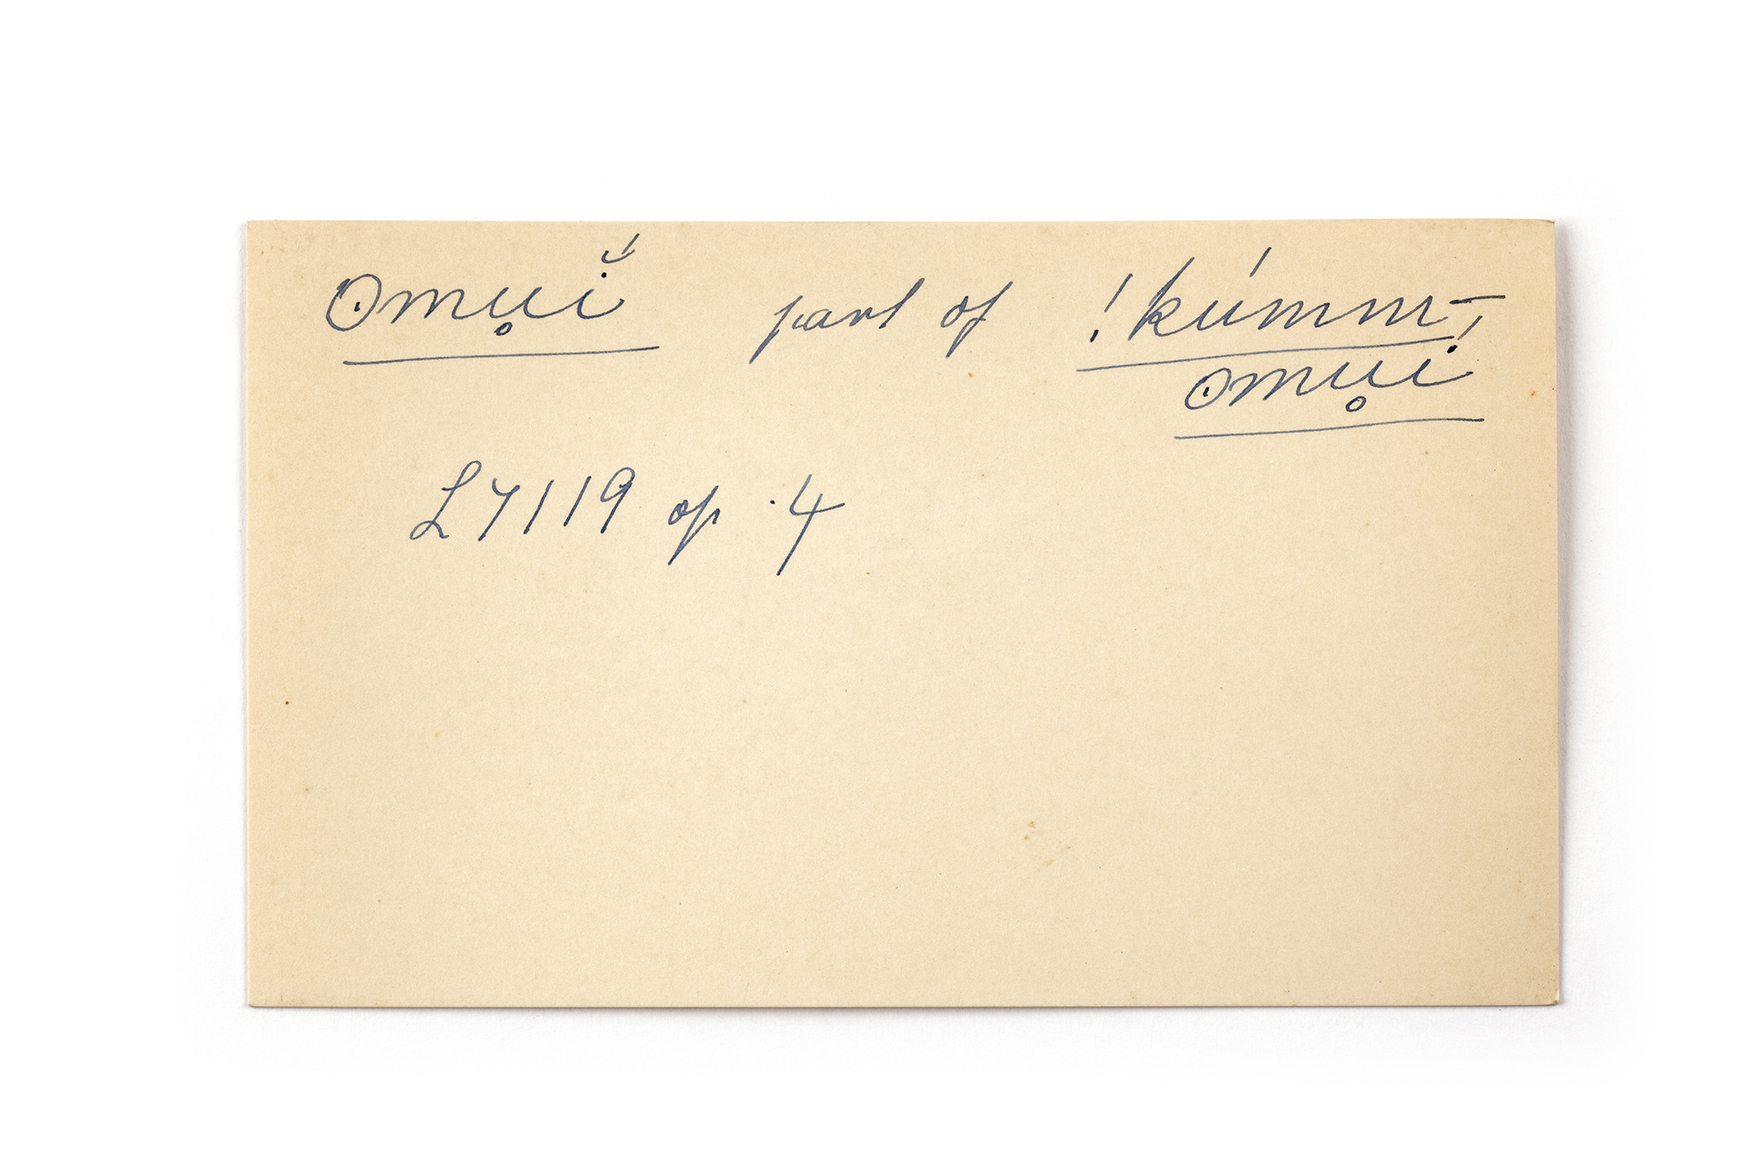 ʘmu̥ĭ́ part of !kúmm-
ʘmu̥í
L7119 op. 4